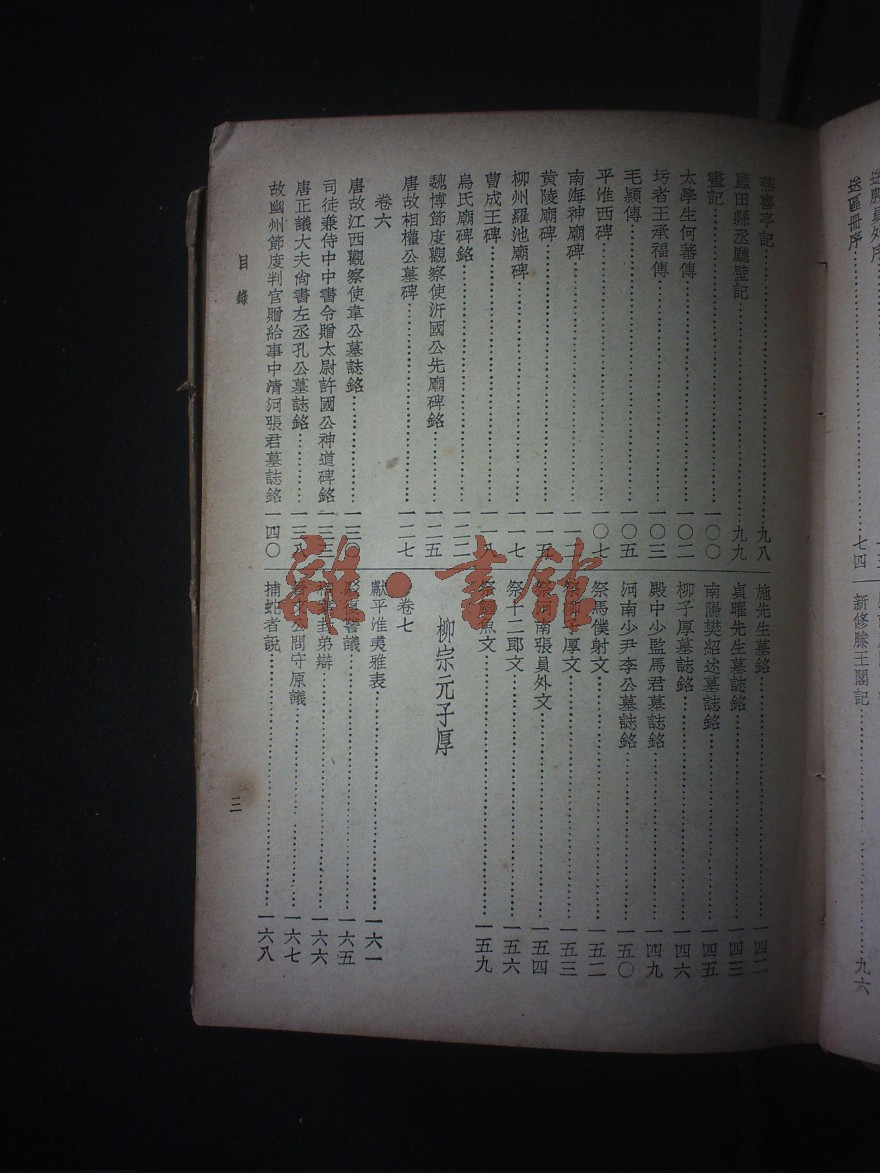 燕喜亭記……九八
藍田縣丞廳壁記……九九
畫記……一〇〇
太學生何蕃傳……一〇二
圬者王承福傳……一〇三
毛穎傳……一〇五
平淮西碑……一〇七
南海神廟碑……一一二
黃陵廟碑……一一五
柳州羅池廟碑……一一七
曹成王碑……一一八
烏氏廟碑銘……一二二
魏博節度觀察使沂國公先廟碑銘……一二五
唐故相權公墓碑……一二七
卷六
唐故江西觀察使韋公墓誌銘……一三〇
司徒兼侍中中書令贈太尉許國公神道碑銘……一三三
唐正議大夫尙書左丞孔公墓誌銘……一三八
故幽州節度判官贈給事中淸河張君墓誌銘一四〇
施先生墓銘……一四二
貞曜先生墓誌銘……一四三
南陽樊紹述墓誌銘……一四五
柳子厚墓誌銘……一四六
殿中少監馬君墓誌銘……一四九
河南少尹李公墓誌銘……一五〇
祭馬僕射文……一五二
祭柳子厚文……一五三
祭河南張員外文……一五四
祭十二郎文……一五六
祭鱷魚文……一五九
柳宗元子厚
卷七
獻平淮夷雅表……一六一
駁復讐議……一六五
桐葉封弟辯……一六六
晉文公問守原議……一六七
捕蛇者說……一六八
目錄
三
送區册序……七四
新修滕王閣記……九六
雜·書館